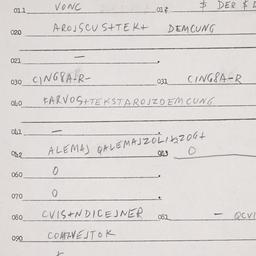 011 VONC 012 $ DER $
020 AROJSCUS+TEK+ DEMCUNG
021 —
030 CING8A-R- 031 CING8A-R
040 +ARVOS+TEKSTAROJZDEMCUNG
041 —
042 ALEMAJ QALEMAJZOLI 043 0
060 0
070 0
080 CVIS+NDICEJNER 081 — QCVI
090